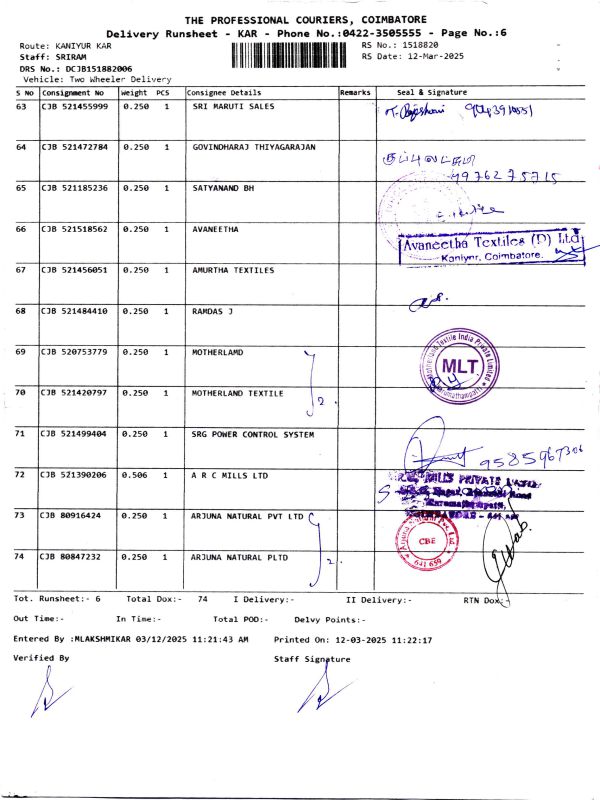 THE PROFESSIONAL COURIERS, COIMBATORE
Delivery Runsheet - KAR - Phone No.:0422-3505555 - Page No.:6
Route: KANIYUR KAR RS No.: 1518820
Staff: SRIRAM RS Date: 12-Mar-2025
DRS No.: DCJB151882006
Vehicle: Two Wheeler Delivery
S No Consignment No Weight PCS Consignee Details Remarks Seal & Signature
63 CJB 521455999 0.250 1 SRI MARUTI SALES
64 CJB 521472784 0.250 1 GOVINDHARAJ THIYAGARAJAN
9976275715
65 CJB 521185236 0.250 1 SATYANAND BH
66 CJB 521518562 0.250 1 AVANEETHA
Avaneetha Textiles (P) Ltd
Kaniyur, Coimbatore.
67 CJB 521456051 0.250 1 AMURTHA TEXTILES
68 CJB 521484410 0.250 1 RAMDAS J
69 CJB 520753779 0.250 1 MOTHERLAMD
Motherland Textile India Private Limited
MLT
70 CJB 521420797 0.250 1 MOTHERLAND TEXTILE 2.
71 CJB 521499404 0.250 1 SRG POWER CONTROL SYSTEM
9585967306
72 CJB 521390206 0.506 1 A R C MILLS LTD
MILLS PRIVATE
73 CJB 80916424 0.250 1 ARJUNA NATURAL PVT LTD
CBE
641 659
74 CJB 80847232 0.250 1 ARJUNA NATURAL PLTD 2.
Tot. Runsheet:- 6 Total Dox:- 74 I Delivery:- II Delivery:- RTN Dox:-
Out Time:- In Time:- Total POD:- Delvy Points:-
Entered By :MLAKSHMIKAR 03/12/2025 11:21:43 AM Printed On: 12-03-2025 11:22:17
Verified By Staff Signature